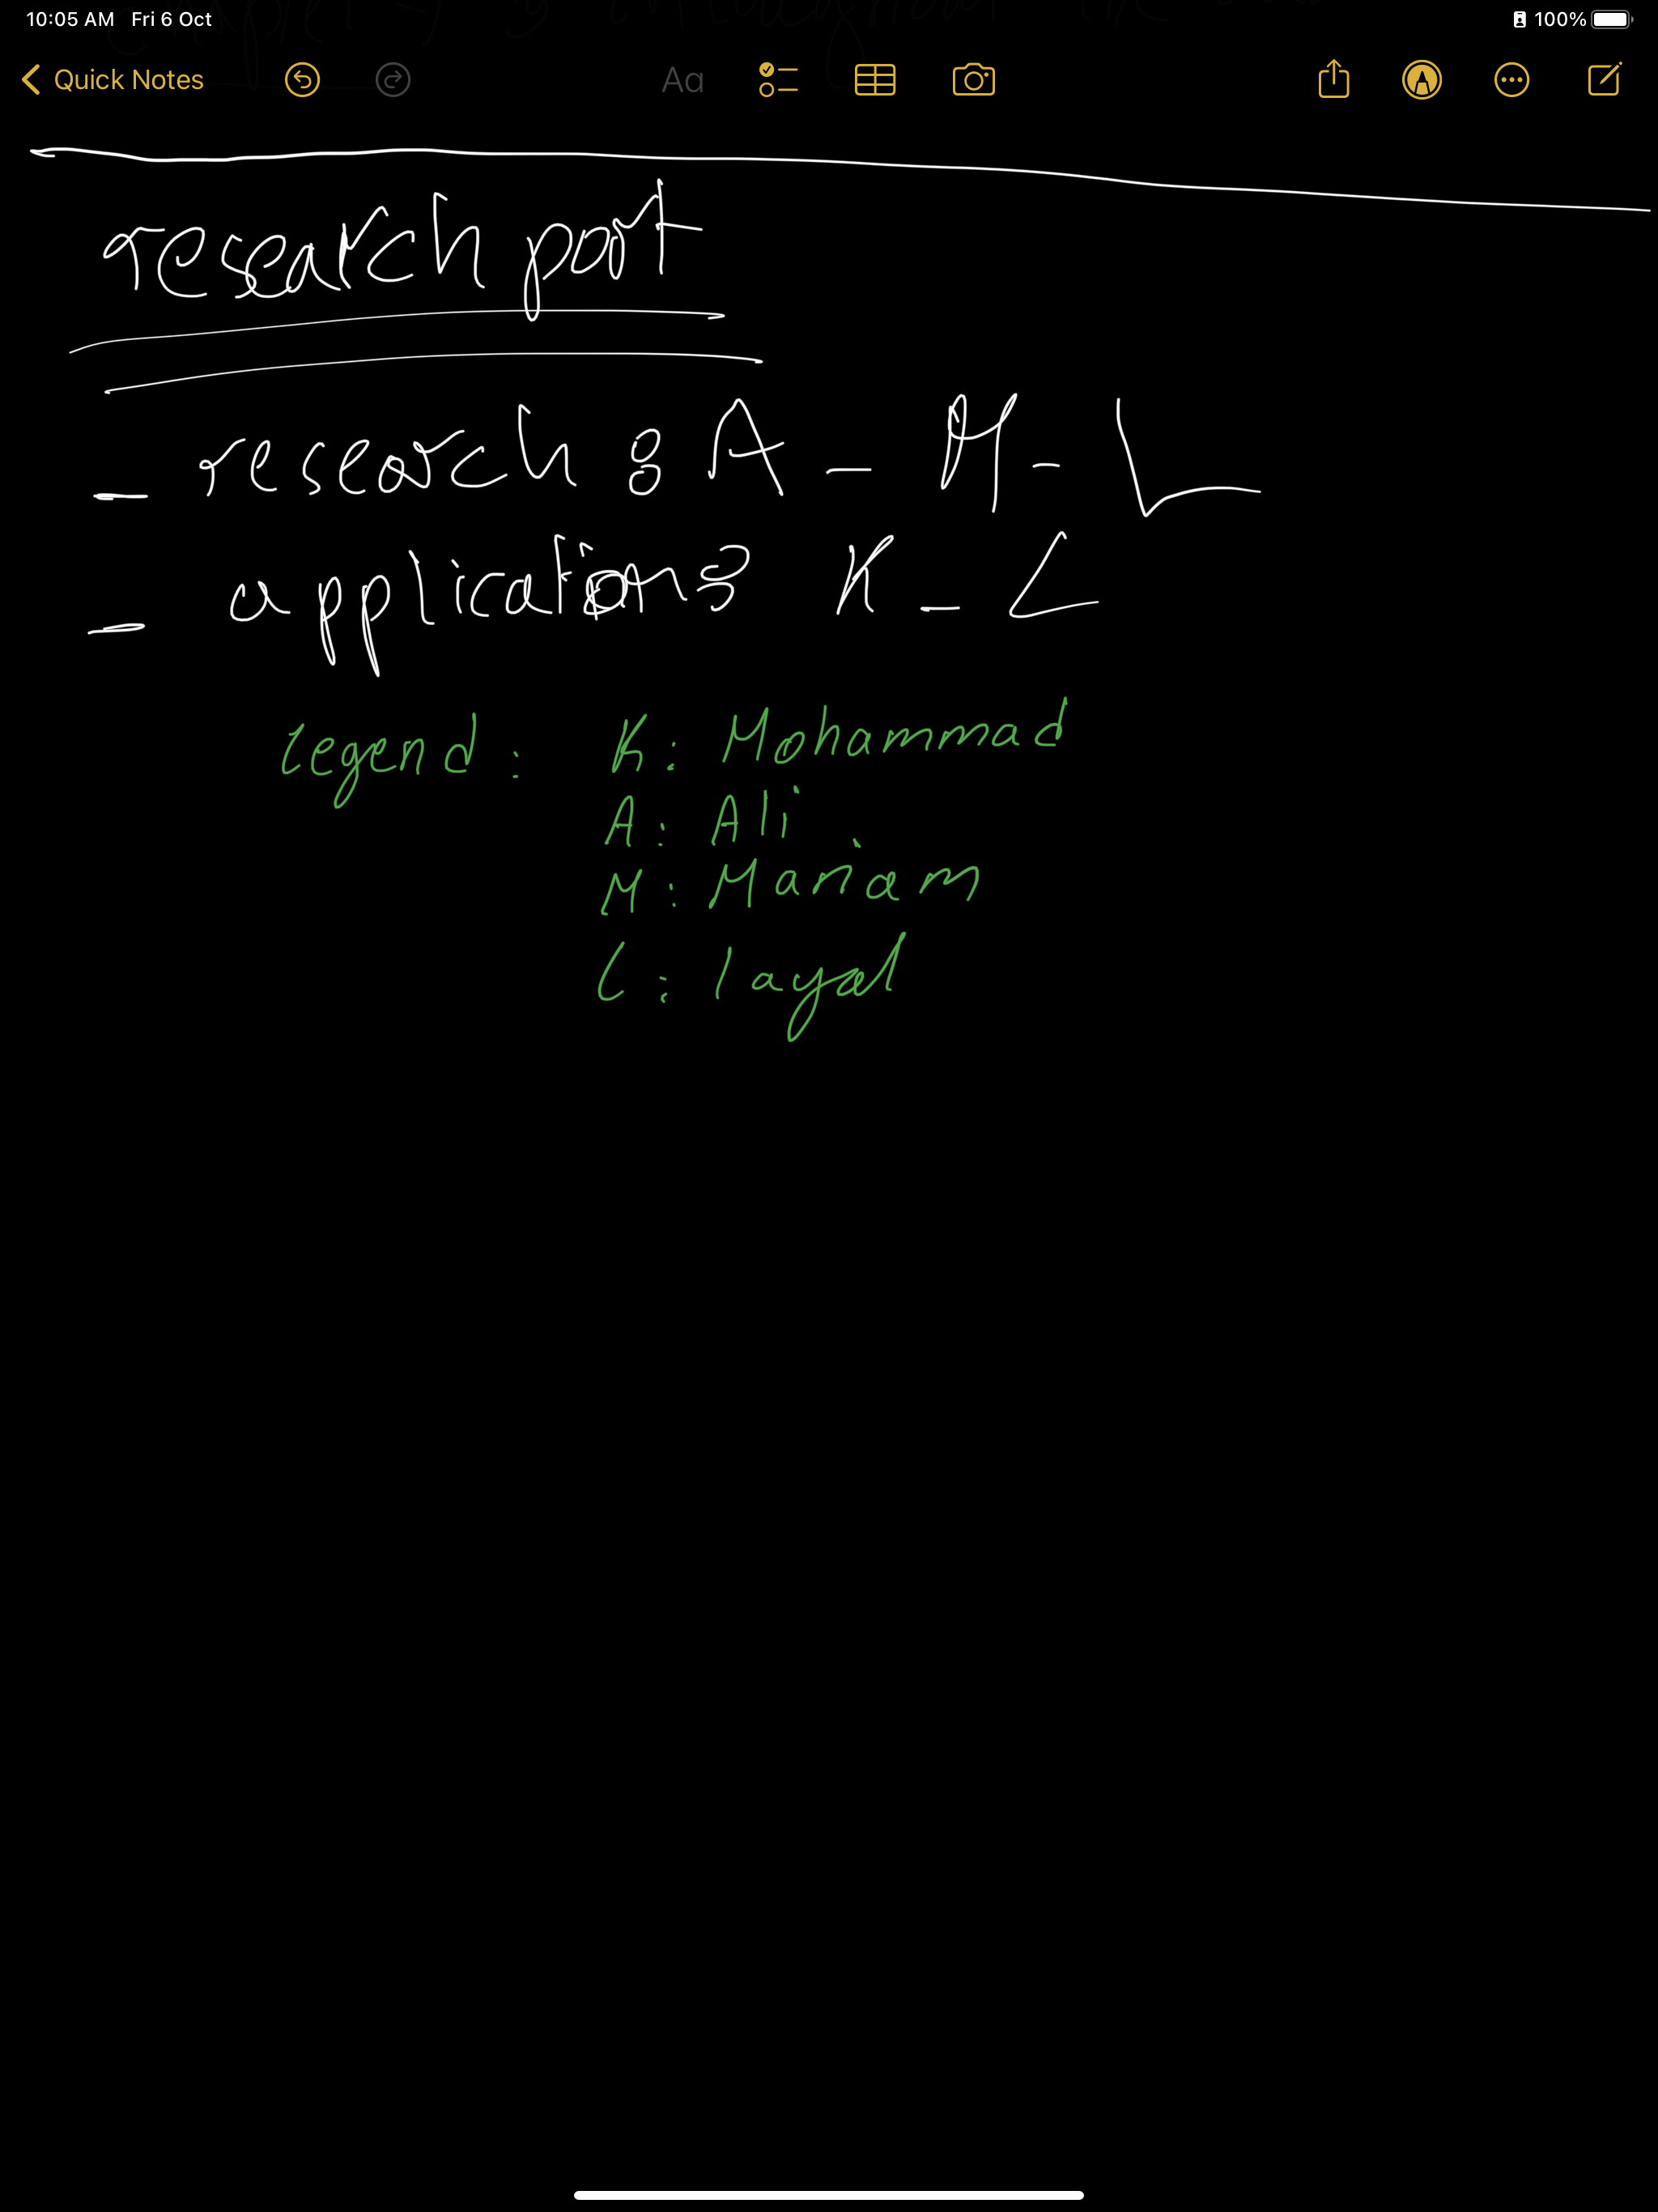 10:05 AM Fri 6 Oct 100%
Quick Notes Aa
research part
- research : A - M - L
- applications K - L
legend : K : Mohammad
A : Ali
M : Mariam
L : layal